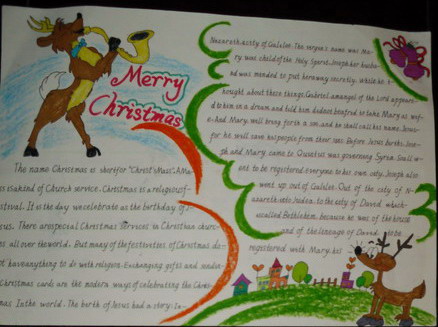 Merry
Christmas
The name Christmas is short for "Christ's Mass". A Ma-
ss is a kind of Church service. Christmas is a religious f-
estival. It is the day we celebrate as the birthday of J-
esus. There are special Christmas services in Christian churc-
hes all over the world. But many of the festivities of Christmas do
not have anything to do with religion. Exchanging gifts and sendin-
Christmas cards are the modern ways of celebrating the Christ-
mas in the world. The birth of Jesus had a story: In
Nazareth, a city of Galilee. The virgin's name was Ma-
ry was child of the Holy Spirit. Joseph her husba-
nd was minded to put her away secretly. While he t-
hought about these things. Gabriel, an angel of the Lord appeare-
d to him in a dream and told him did not be afraid to take Mary as wif-
e. And Mary will bring forth a son, and he shall call his name Jesus.
for he will save his people from their sins. Before Jesus births, Jose-
ph and Mary came to Quirinius was governing Syria. So all w-
ent to be registered everyone to his own city. Joseph also
went up out of Galilee. Out of the city of N-
azareth into Judea, to the city of David, which
is called Bethlehem, because he was of the house
and of the lineage of David, to be
registered with Mary, his